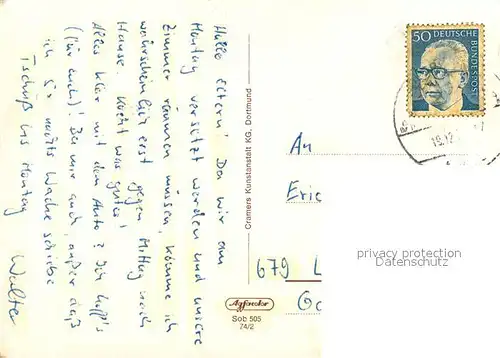 Hallo Eltern! Da wir am
Montag versetzt werden und unsere
Zimmer räumen müssen, komme ich
wahrscheinlich erst gegen Mittag nach
Hause. Kocht was gutes!
Alles klar mit dem Auto? Ich hoff's
(für euch)! Bei mir auch, außer daß
ich So nachts Wache schiebe
Tschüß bis Montag
Walter
Cramers Kunstanstalt KG. Dortmund
Agfacolor
Sob 505
74/2
50 DEUTSCHE
BUNDESPOST
19.12.
An
Eric
679 L
privacy protection
Datenschutz